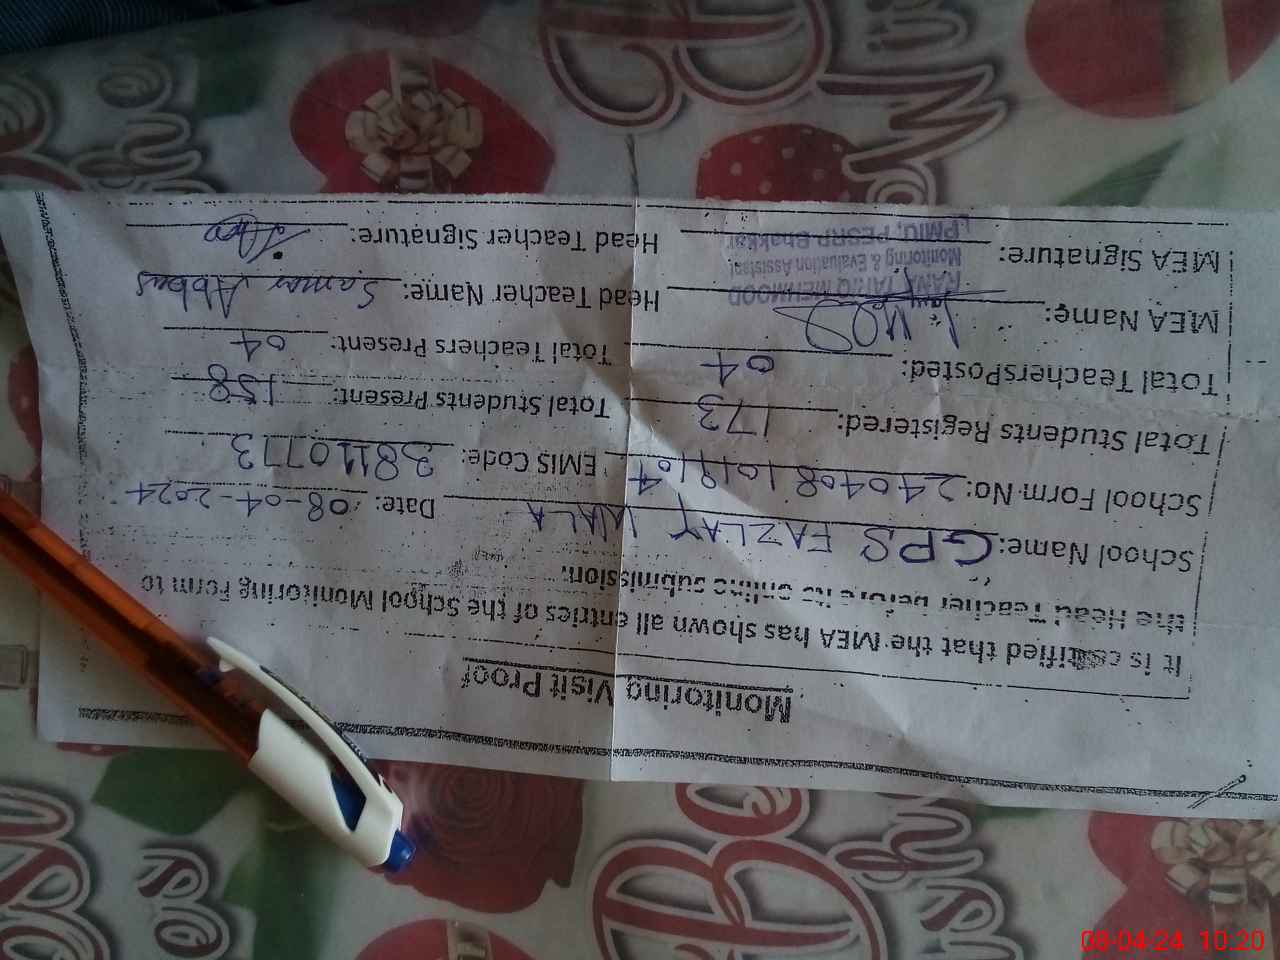 Monitoring Visit Proof
It is certified that the MEA has shown all entries of the School Monitoring Form to
the Head Teacher before its online submission.
School Name: GPS FAZLAY WALA Date: 08-04-2024
School Form No: EMIS Code: 38110773
Total Students Registered: 173 Total Students Present: 158
Total TeachersPosted: 04 Total Teachers Present: 04
MEA Name: Head Teacher Name: Samar Abbas
RANA TARIQ MEHMOOD
Monitoring & Evaluation Assistant
PMIU, PESRP Bhakkar
MEA Signature: Head Teacher Signature:
08-04-24 10:20